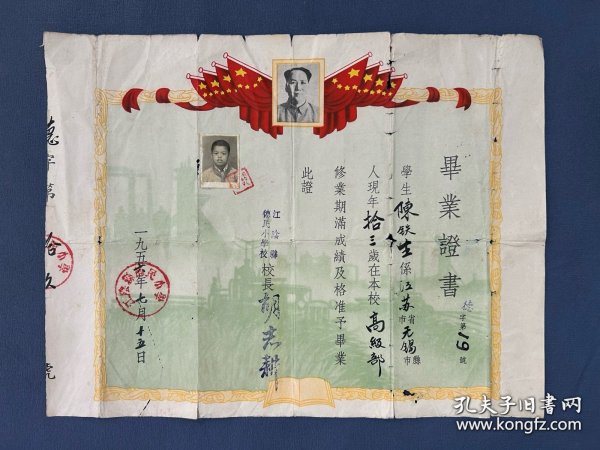 畢業證書
德字第19號
學生陳鉄生係江苏省市无锡縣市
人現年拾三歲在本校高級部
修業期滿成績及格准予畢業
此證
江陰縣
德用小學校
校長胡志耕
一九五六年七月十五日
孔夫子旧书网
www.kongfz.com